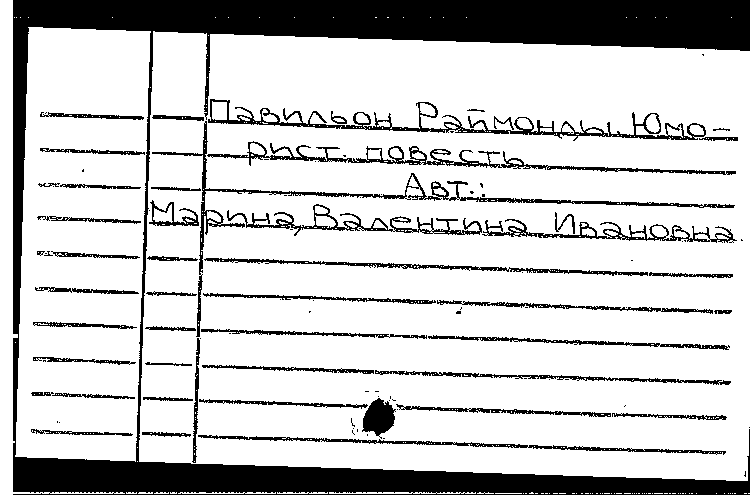 Павильон Раймонды. Юмо-
рист. повесть
Авт.:
Марина, Валентина Ивановна